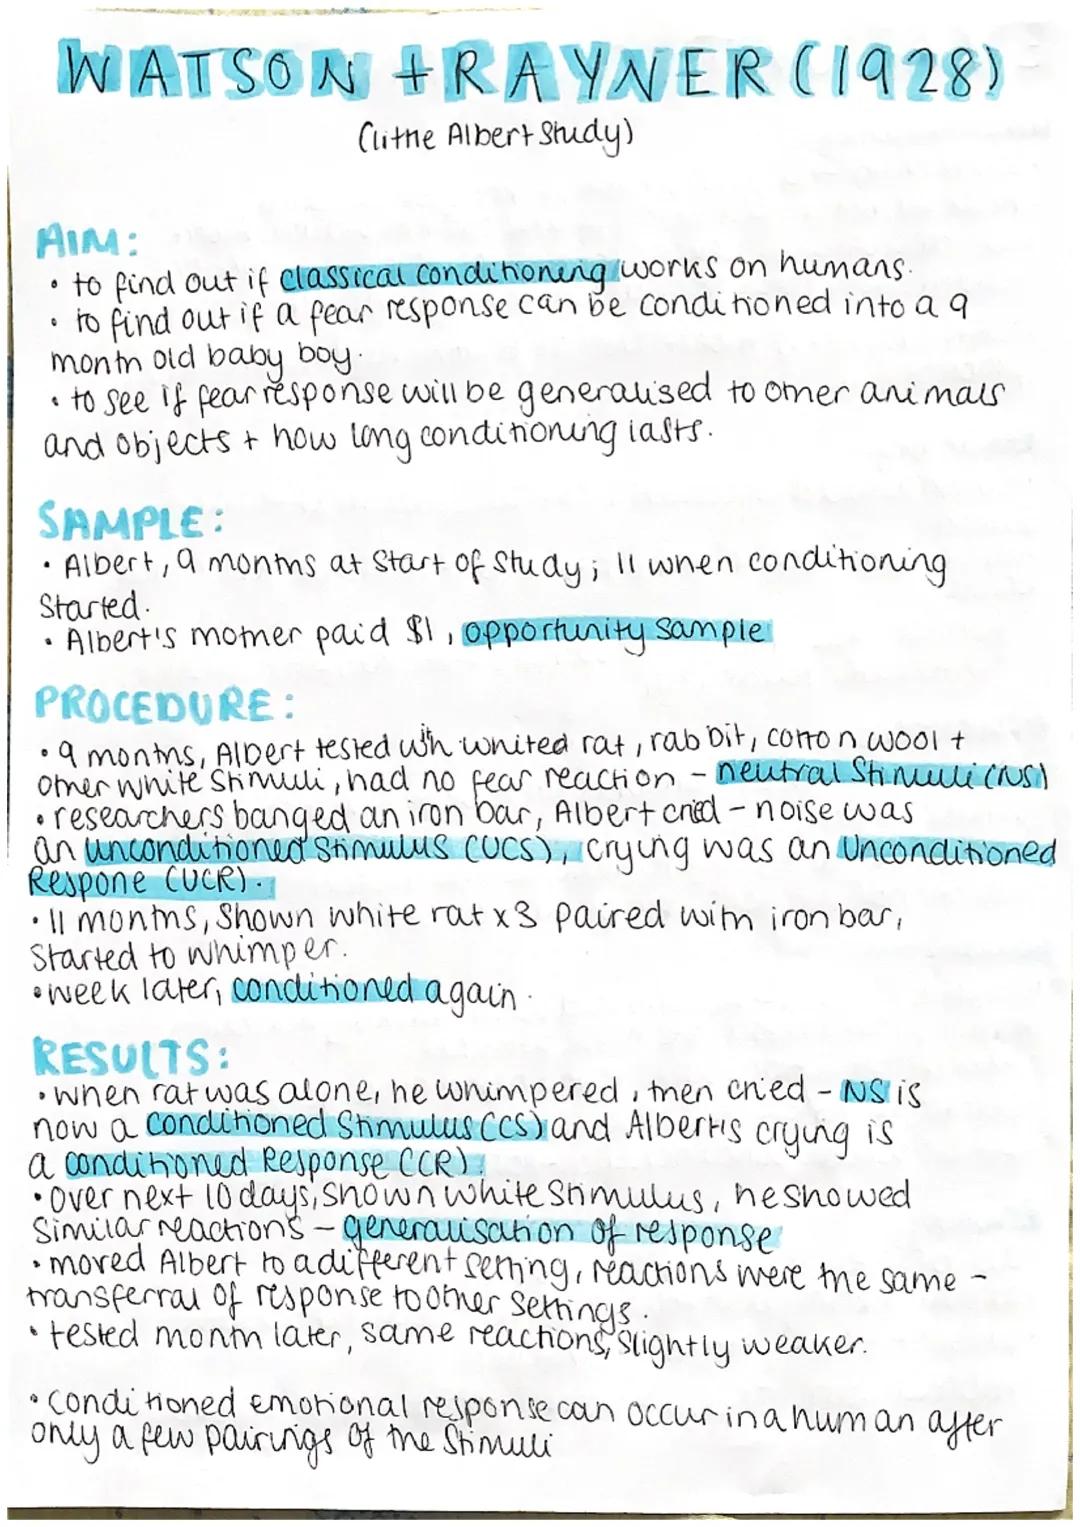 WATSON + RAYNER (1928)
(little Albert Study)
AIM:
• to find out if classical conditioning works on humans.
• to find out if a fear response can be conditioned into a 9
month old baby boy.
• to see if fear response will be generalised to other animals
and objects + how long conditioning lasts.
SAMPLE:
• Albert, 9 months at start of study; 11 when conditioning
started.
• Albert's mother paid $1, opportunity sample
PROCEDURE:
• 9 months, Albert tested with whited rat, rabbit, cotton wool +
other white stimuli, had no fear reaction - neutral Stimuli (NS)
• researchers banged an iron bar, Albert cried - noise was
an unconditioned Stimulus (UCS), crying was an Unconditioned
Respone (UCR).
• 11 months, shown white rat x3 paired with iron bar,
Started to whimper.
• week later, conditioned again.
RESULTS:
• when rat was alone, he whimpered, then cried - NS is
now a conditioned Stimulus (CS) and Albert's crying is
a conditioned Response (CR).
• Over next 10 days, shown white Stimulus, he showed
similar reactions - generalisation of response
• moved Albert to a different setting, reactions were the same -
transferral of response to other settings.
• tested month later, same reactions, slightly weaker.
• Conditioned emotional response can occur in a human after
only a few pairings of the Stimuli